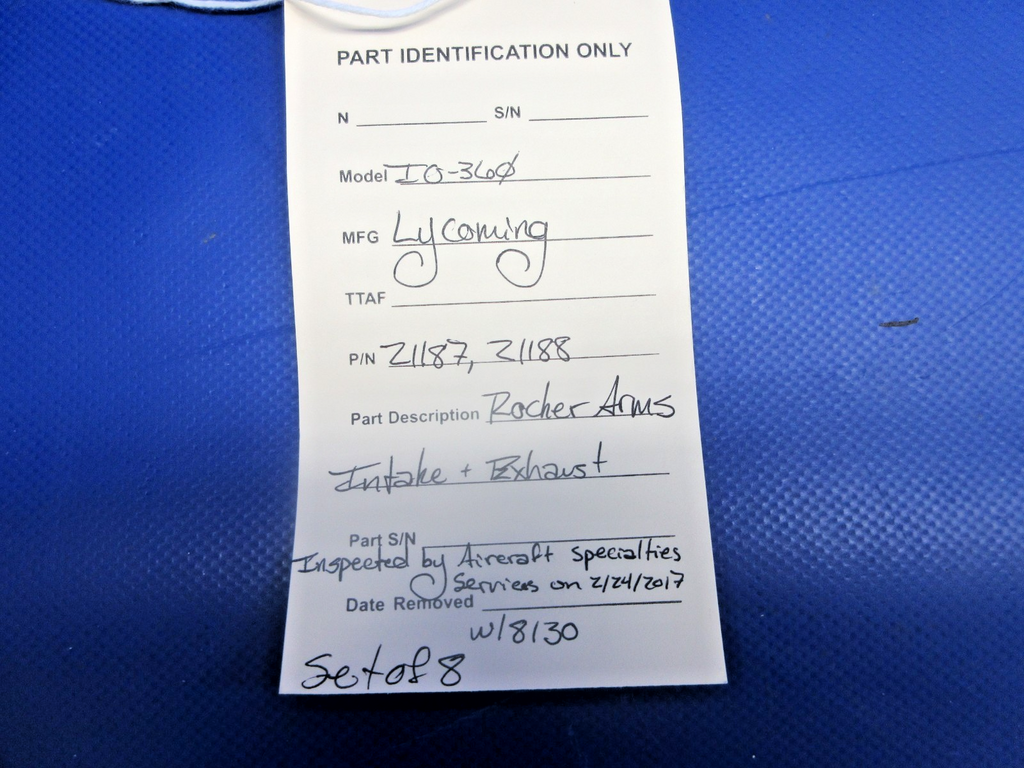 PART IDENTIFICATION ONLY
N S/N
Model IO-360
MFG Lycoming
TTAF
P/N 21187, 21188
Part Description Rocker Arms
Intake + Exhaust
Part S/N
Inspected by Aircraft Specialties
Services on 2/24/2017
Date Removed
w/8130
Set of 8